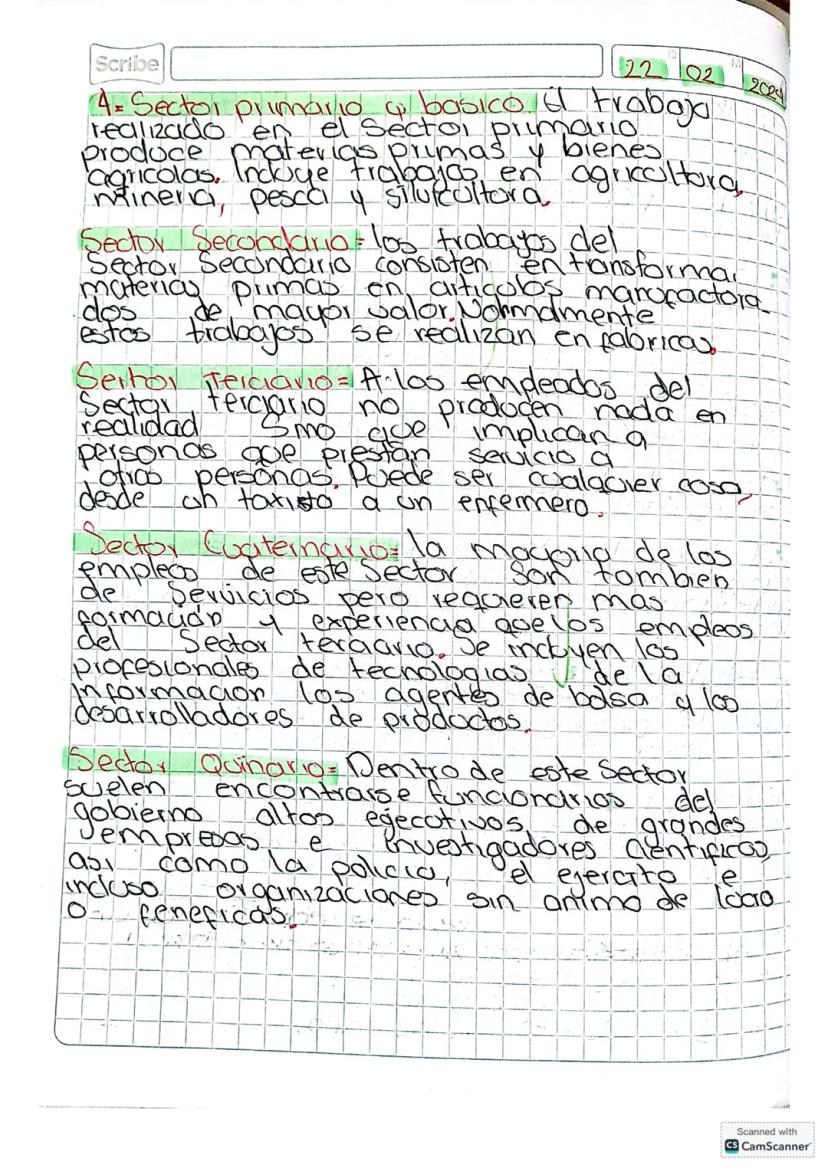 Scribe
22 02 2024
4= Sector primario o basico. El trabajo
realizado en el Sector primario
produce materias primas y bienes
agricolas. Incluye trabajos en agricultura,
mineria, pesca y silvicultora.
Sector Secondario= los trabajos del
Sector Secondario consisten en transformar
materias primas en articulos manofactora-
dos de mayor valor. Normalmente
estos trabajos se realizan en fabricas.
Sector Terciario= A los empleados del
Sector terciario no producen nada en
realidad Sino que implican a
personas que prestan servicio a
otras personas. Puede ser cualquier cosa,
desde un taxista a un enfermero.
Sector Cuaternario= la mayoria de los
empleos de este Sector son tambien
de Servicios pero requieren mas
formación y experiencia que los empleos
del Sector terciario. Se incluyen los
profesionales de tecnologias de la
informacion los agentes de bolsa y los
desarrolladores de productos.
Sector Quinario= Dentro de este Sector
suelen encontrarse funcionarios del
gobierno altos ejecutivos de grandes
empresas e investigadores cientificos,
asi como la policia, el ejercito e
incluso organizaciones sin animo de lucro
o feneficas.
Scanned with
CS CamScanner